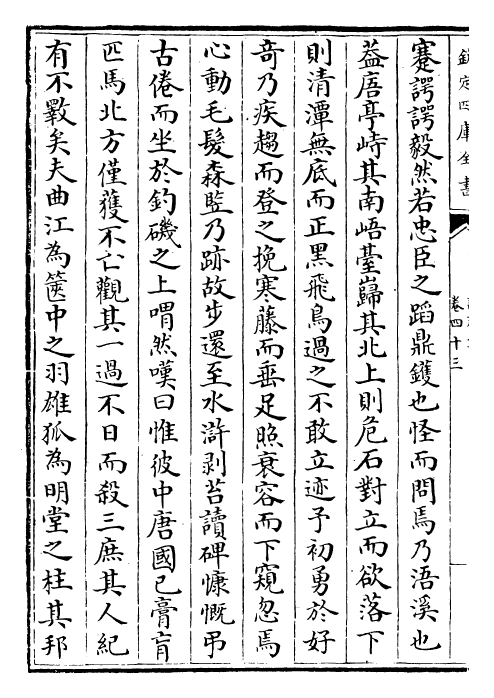 欽定四庫全書
卷四十三
蹇諤諤毅然若忠臣之蹈鼎鑊也怪而問焉乃浯溪也
葢𢈪亭峙其南峿臺巋其北上則危石對立而欲落下
則清潭無底而正黑飛鳥過之不敢立迹予初勇於好
竒乃疾趨而登之挽寒藤而垂足照衰容而下窺忽焉
心動毛髮森竪乃跡故步還至水滸剥苔讀碑慷慨弔
古倦而坐於釣磯之上喟然嘆曰惟彼中唐國已膏肓
匹馬北方僅獲不亡觀其一過不日而殺三庶其人紀
有不斁矣夫曲江為篋中之羽雄狐為明堂之柱其邦